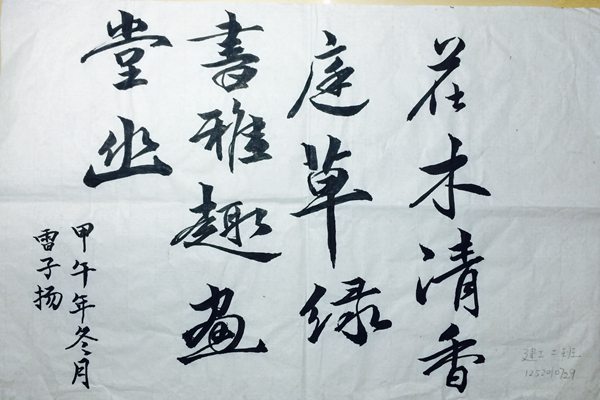 花木清香
庭草绿
書雅趣畫
堂幽
甲午年冬月
雷子扬
建工二班